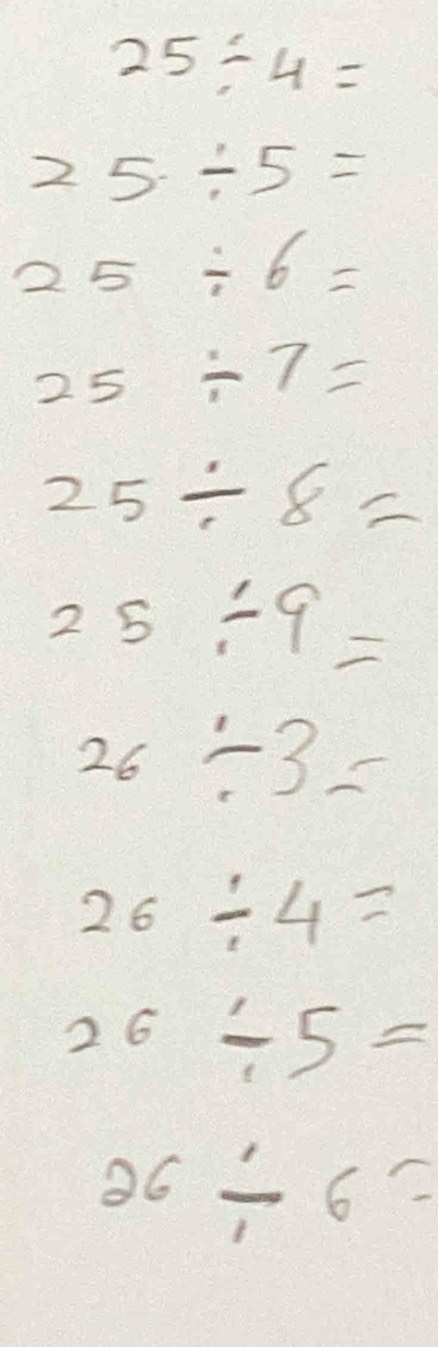 25 ÷ 4 =
25 ÷ 5 =
25 ÷ 6 =
25 ÷ 7 =
25 ÷ 8 =
25 ÷ 9 =
26 ÷ 3 =
26 ÷ 4 =
26 ÷ 5 =
26 ÷ 6 =